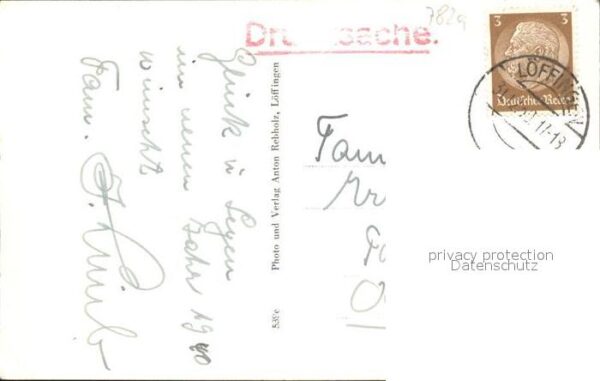 782a
Drucksache.
3 3
Deutsches Reich
LÖFFINGEN
17-18
Glück u. Segen
im neuen Jahr 1940
wünscht
Fam.
Photo und Verlag Anton Rebholz, Löffingen
Fam
privacy protection
Datenschutz